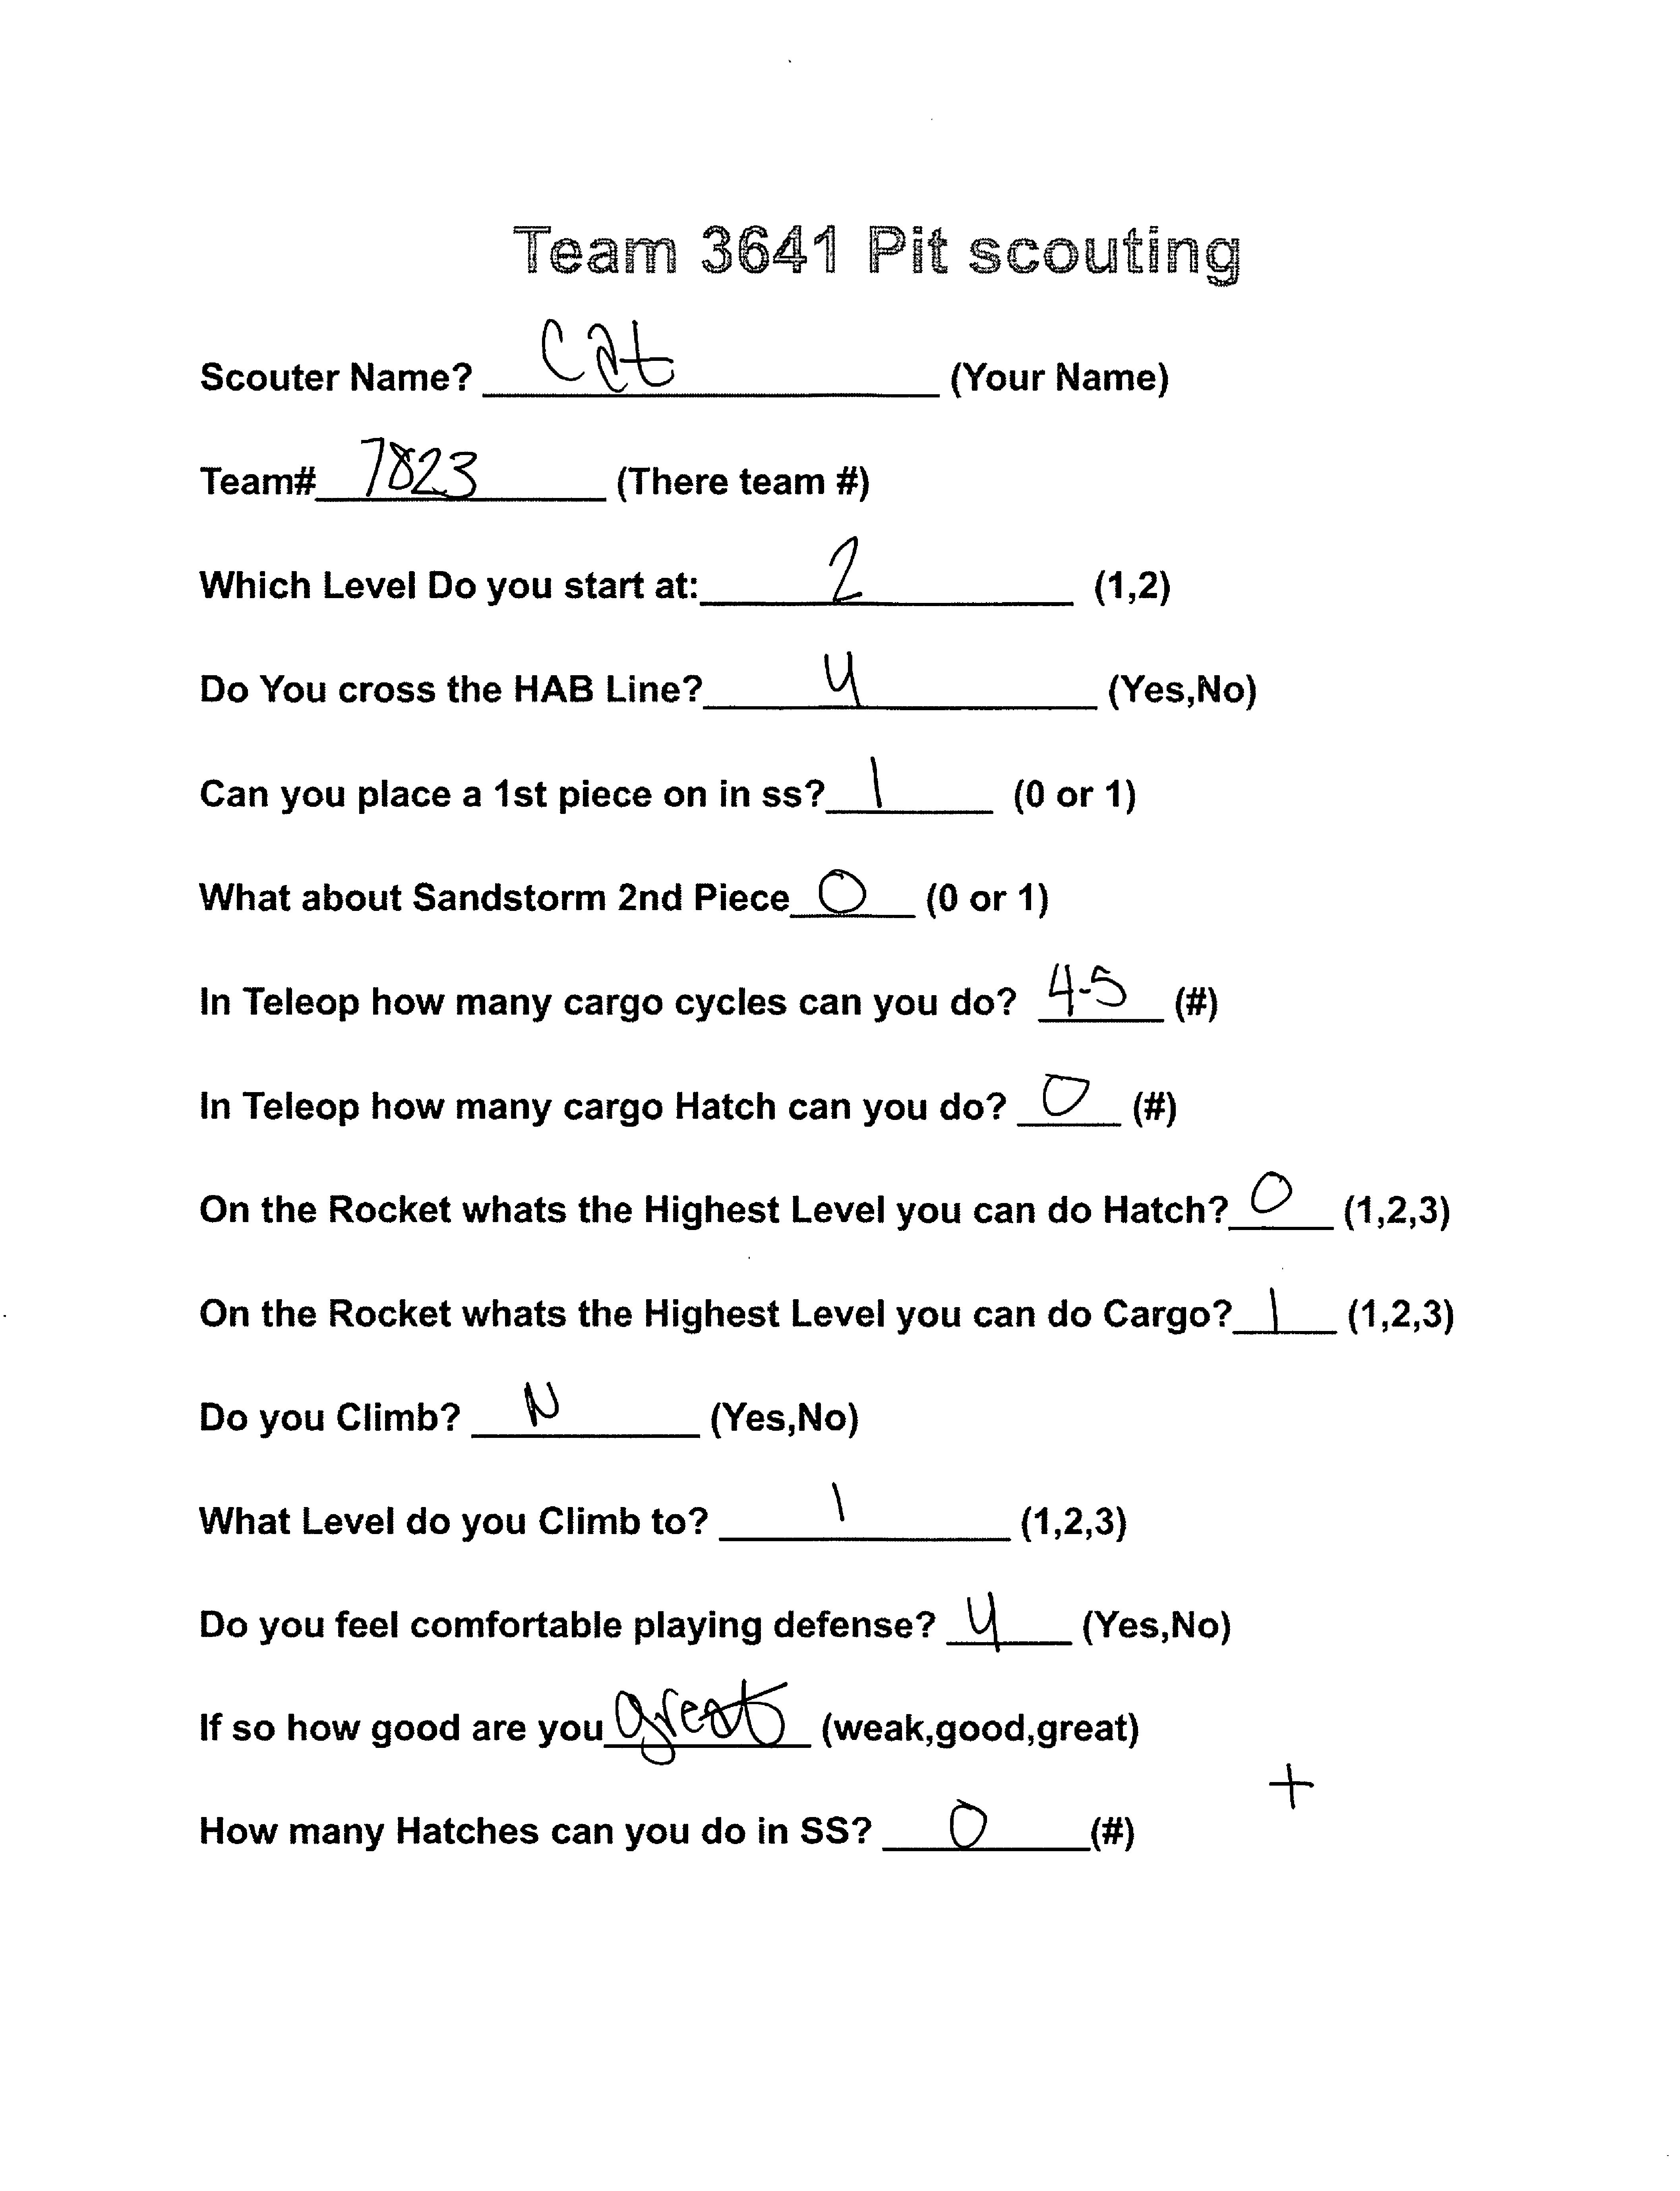 Team 3641 Pit scouting
Scouter Name? Cat (Your Name)
Team# 7823 (There team #)
Which Level Do you start at: 2 (1,2)
Do You cross the HAB Line? y (Yes,No)
Can you place a 1st piece on in ss? 1 (0 or 1)
What about Sandstorm 2nd Piece 0 (0 or 1)
In Teleop how many cargo cycles can you do? 4-5 (#)
In Teleop how many cargo Hatch can you do? 0 (#)
On the Rocket whats the Highest Level you can do Hatch? 0 (1,2,3)
On the Rocket whats the Highest Level you can do Cargo? 1 (1,2,3)
Do you Climb? N (Yes,No)
What Level do you Climb to? 1 (1,2,3)
Do you feel comfortable playing defense? y (Yes,No)
If so how good are you great (weak,good,great)
+
How many Hatches can you do in SS? 0 (#)